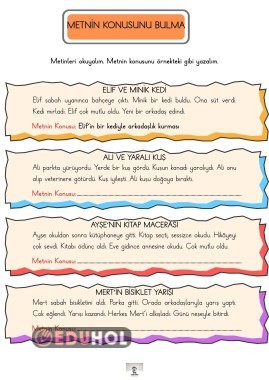 METNİN KONUSUNU BULMA
Metinleri okuyalım. Metnin konusunu örnekteki gibi yazalım.
ELİF VE MİNİK KEDİ
Elif sabah uyanınca bahçeye çıktı. Minik bir kedi buldu. Ona süt verdi.
Kedi mırladı. Elif çok mutlu oldu. Yeni bir arkadaş edindi.
Metnin Konusu: Elif'in bir kediyle arkadaşlık kurması
ALİ VE YARALI KUŞ
Ali parkta yürüyordu. Yerde bir kuş gördü. Kuşun kanadı yaralıydı. Ali onu
alıp veterinere götürdü. Kuş iyileşti. Ali kuşu doğaya bıraktı.
Metnin Konusu:
AYŞE'NİN KİTAP MACERASI
Ayşe okuldan sonra kütüphaneye gitti. Kitap seçti, sessizce okudu. Hikâyeyi
çok sevdi. Kitabı ödünç aldı. Eve gidince annesine okudu. Çok mutlu oldu.
Metnin Konusu:
MERT'İN BİSİKLET YARIŞI
Mert sabah bisikletini aldı. Parka gitti. Orada arkadaşlarıyla yarış yaptı.
Çok eğlendi. Yarışı kazandı. Herkes Mert'i alkışladı. Günü neşeyle bitirdi.
EDUHOL